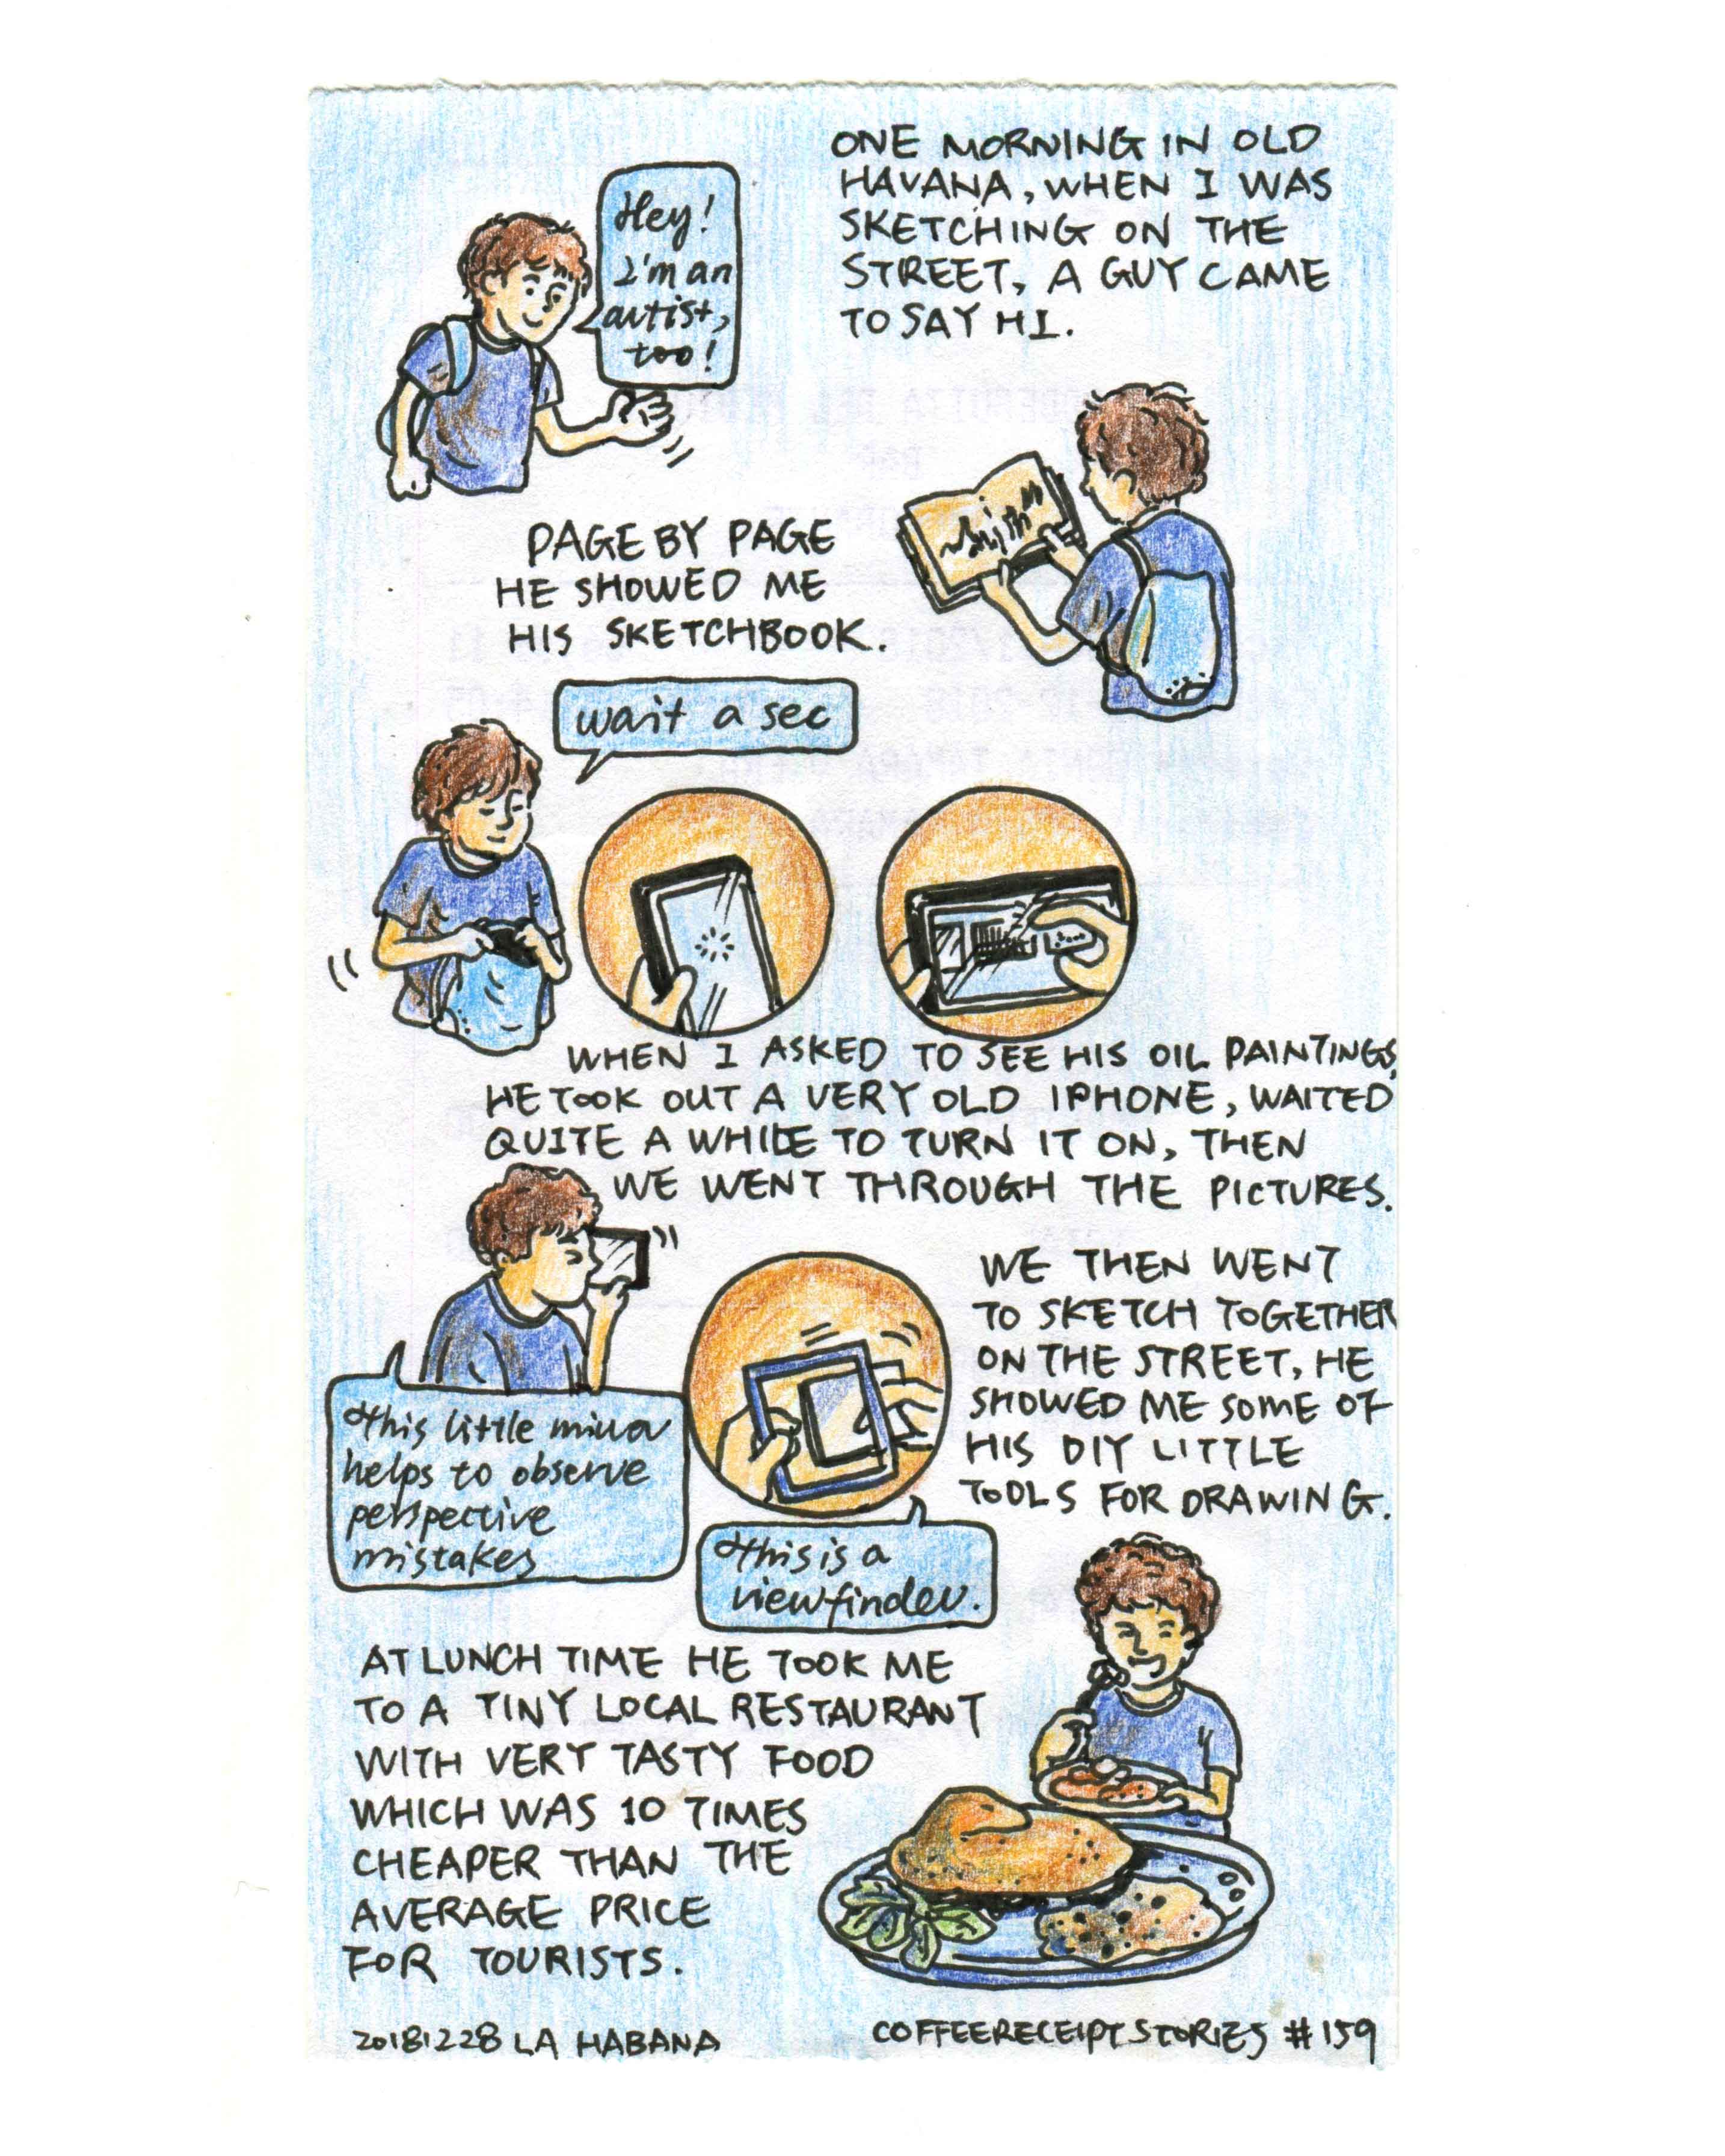 ONE MORNING IN OLD
HAVANA, WHEN I WAS
SKETCHING ON THE
STREET, A GUY CAME
TO SAY HI.
Hey!
I'm an
artist,
too!
PAGE BY PAGE
HE SHOWED ME
HIS SKETCHBOOK.
wait a sec
WHEN I ASKED TO SEE HIS OIL PAINTINGS,
HE TOOK OUT A VERY OLD IPHONE, WAITED
QUITE A WHILE TO TURN IT ON, THEN
WE WENT THROUGH THE PICTURES.
WE THEN WENT
TO SKETCH TOGETHER
ON THE STREET, HE
SHOWED ME SOME OF
HIS DIY LITTLE
TOOLS FOR DRAWING.
this little mirror
helps to observe
perspective
mistakes
this is a
viewfinder.
AT LUNCH TIME HE TOOK ME
TO A TINY LOCAL RESTAURANT
WITH VERY TASTY FOOD
WHICH WAS 10 TIMES
CHEAPER THAN THE
AVERAGE PRICE
FOR TOURISTS.
20181228 LA HABANA
COFFEERECEIPTSTORIES #159